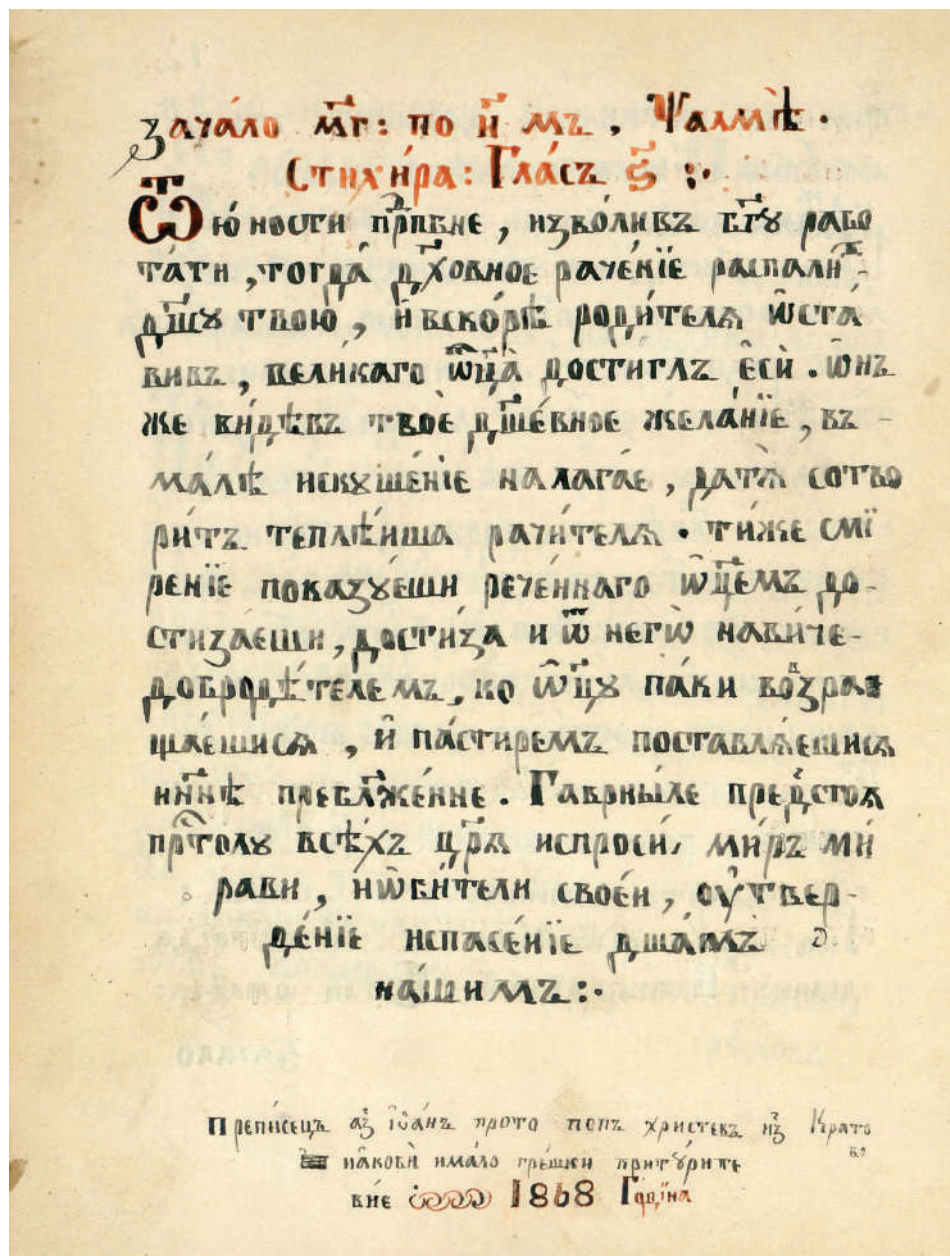 зачало мг҃: по н҃ мъ, Ѱалмѣ.
Стихи́ра: Гла́съ ѕ҃ :·
Ѿ ю́ности прⷣпбне, изво́ливъ бг҃ꙋ рабо
тати, тогда́ дх҃овное раче́нїе распали
дш҃ꙋ твою̀, и҆ вско́рѣ роди́телѧ ѡ҆ста́
вивъ, великаго ѻ҆ц҃а̀ достиглъ є҆сѝ. ѡ҆нъ
же видѣвъ твоѐ дш҃е́вное жела́нїе, въ -
ма́лѣ искꙋше́нїе налага́е, да тѧ̀ сотво
ри́тъ теплѣ́иша рачи́телѧ. ти́же смї
ре́нїе показꙋ́еши рече́ннаго ѡ҆ц҃е́мъ до-
стиза́еши, дости́за и ѿ негѡ̀ навиче-
добродѣ́телемъ, ко ѻ҆ц҃ꙋ̀ па́ки во́зра
ща́ешисѧ, и҆ па́стиремъ поставлѧ́ешисѧ
нн҃ѣ пребл҃же́нне. Гаврїи́ле предстоѧ
прⷭ҇толꙋ всѣ́хъ цр҃ѧ̀ испроси́, ми́ръ ми
рави, и ѡ҆би́тели своє́и, ᲂу҆твер-
де́нїе испасе́нїе дш҃а́мъ
на́шимъ:·
Препи́сецъ а҆зъ і҆ѡа́нъ прото попъ христевъ и҆зъ Крато
во
и҆ако́ви имало гре́шки притꙋ́рите
ви́е 1868 Годи́на